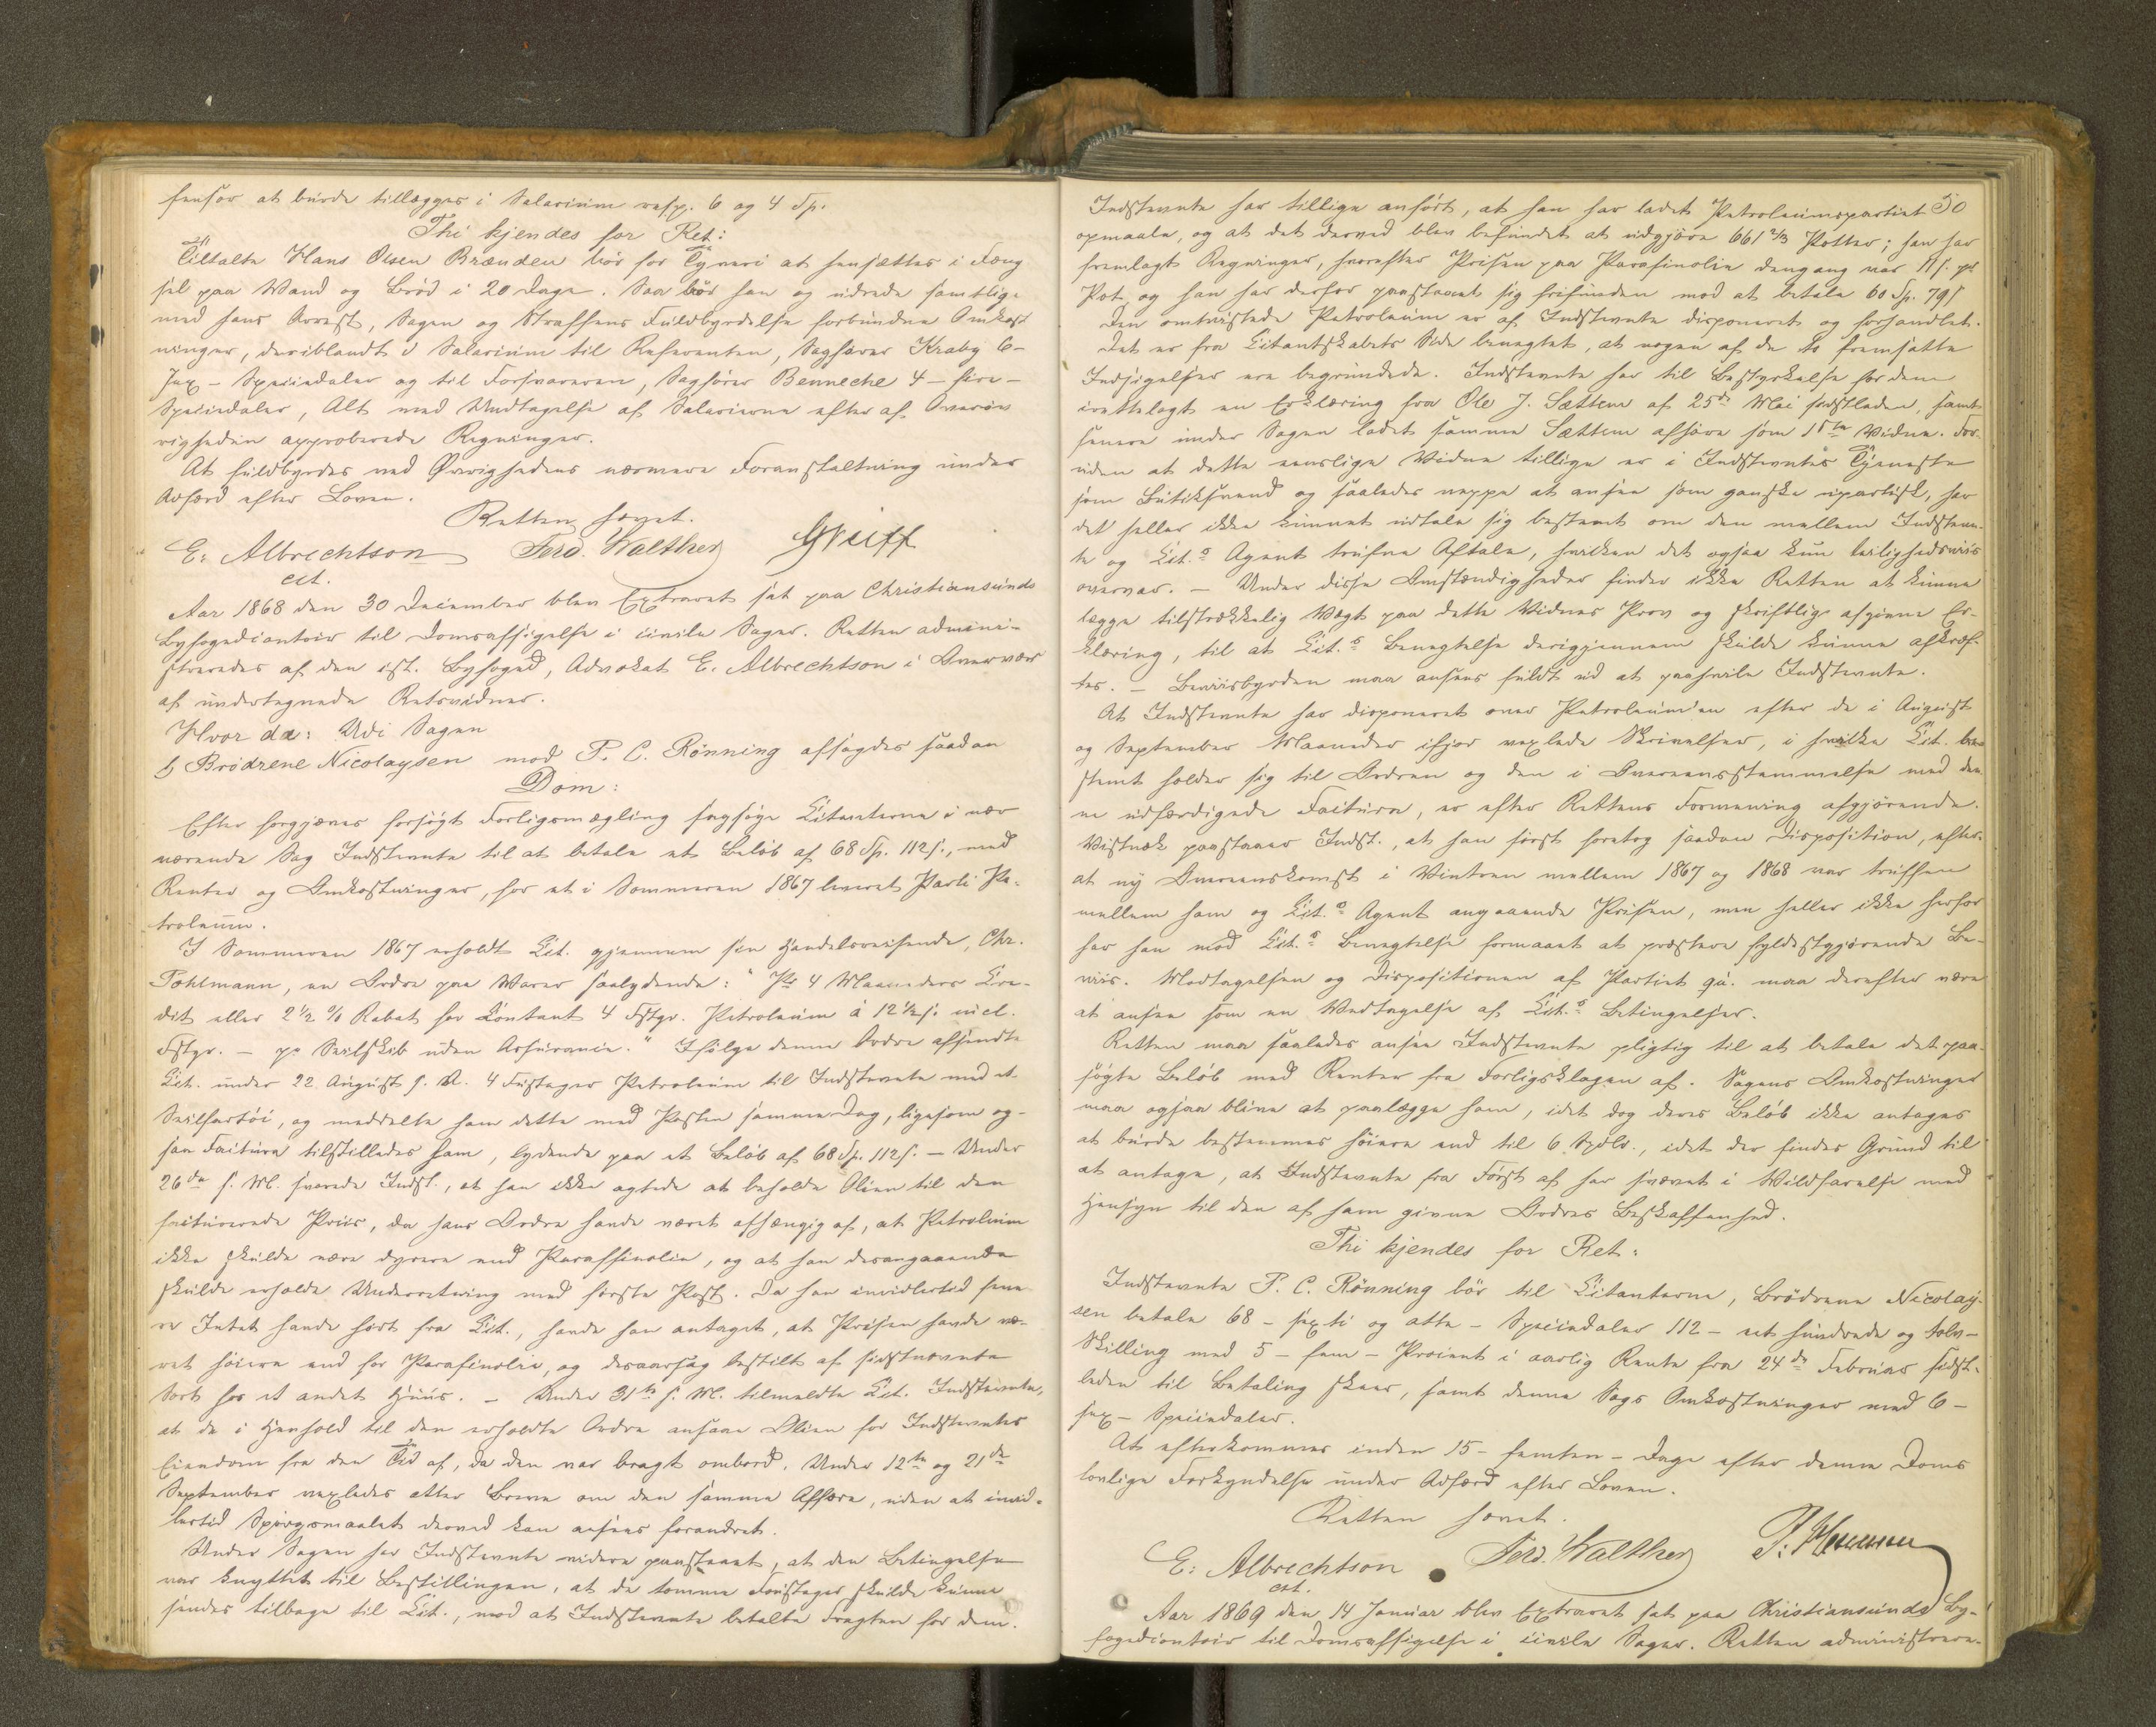 fensor at burde tillægges i Salarium resp. 6 og 4 Sp.
Thi kjendes for Ret:
Tiltalte Hans Olsen Brænden bör for Tyveri at hensættes i Fæng
sel paa Vand og Bröd i 20 Dage. Saa bör han og udrede samtlige
med hans Arrest, Sagen og Straffens Fuldbyrdelse forbundne Omkost
ninger, deriblandt i Salarium til Referenten, Sagförer Kraby 6 –
sex – Speciedaler og til Forsvareren, Sagförer Benneche 4 – fire –
Speciedaler, Alt med Undtagelse af Salarierne efter af Overöv
righeden approberede Regninger.
At fuldbyrdes ved Øvrighedens nærmere Foranstaltning under
Adfærd efter Loven.
Retten hævet.
E. Albrechtson Ferd. Walther Greiff
cst.
Aar 1868 den 30 December blev Extraret sat paa Christiansunds
Byfogedcontoir til Domsafsigelse i civile Sager. Retten admini-
streredes af den cst. Byfoged, Advokat E. Albrechtson i Overvær
af undertegnede Retsvidner.
Hvor da: Udi Sagen
Brödrene Nicolaysen mod P. C. Rönning afsagdes saadan
Dom:
Efter forgjæves forsögt Forligsmægling sagsöge Citanterne i nær
værende Sag Indstevnte til at betale et Belöb af 68 Sp. 112 s., med
Renter og Omkostninger, for et i Sommeren 1867 leveret Parti Pe-
troleum.
I Sommeren 1867 erholdt Cit. gjennem sin Handelsreisende, Chr.
Pohlmann, en Ordre paa Varer saalydende: "Pr 4 Maaneders Cre-
dit eller 2 1/2 % Rabat for Contant 4 Fstgr. Petroleum á 12 1/2 s. incl.
Fstgr. – pr Seilskib uden Assurance." Ifölge denne Ordre afsendte
Cit. under 22 August s. A. 4 Fustager Petroleum til Indstevnte med et
Seilfartöi, og meddelte ham dette med Posten samme Dag, ligesom og-
saa Factura tilstilledes ham, lydende paa et Belöb af 68 Sp. 112 s. – Under
26de s. M. svarede Indst., at han ikke agtede at beholde Olien til den
facturerede Priis, da hans Ordre havde været afhængig af, at Petroleum
ikke skulde være dyrere end Paraffinolie, og at han desangaaende
skulde erholde Underretning med förste Post. Da han imidlertid sene
re Intet havde hört fra Cit., havde han antaget, at Prisen havde væ-
ret höiere end for Parafinolie, og desaarsag bestilt af sidstnævnte
Sort hos et andet Huus. – Under 31te s. M. tilmeldte Cit. Indstevnte,
at de i Henhold til den erholdte Ordre ansaae Olien for Indstevntes
Eiendom fra den Tid af, da den var bragt ombord. Under 12te og 21de
September vexledes atter Breve om den samme Affære, uden at imid-
lertid Spörgsmaalet derved kan ansees forandret.
Under Sagen har Indstevnte videre paastaaet, at den Betingelse
var knyttet til Bestillingen, at de tomme Foustager skulde kunne
sendes tilbage til Cit., mod at Indstevnte betalte Fragten for dem.
50
Indstevnte har tillige anfört, at han har ladet Petroleumspartiet
opmaale, og at det derved blev befundet at udgjöre 661 2/3 Potter; han har
fremlagt Regninger, hvorefter Prisen paa Parafinolie dengang var 11 s. pr
Pot, og han har derfor paastaaet sig frifunden mod at betale 60 Sp. 79 s
Den omtvistede Petroleum er af Indstevnte disponeret og forhandlet.
Det er fra Citantskabets Side benegtet, at nogen af de to fremsatte
Indsigelser ere begrundede. Indstevnte har til Bestyrkelse for dem
irettelagt en Erklæring fra Ole J. Sættem af 25de Mai sidstleden, samt
senere under Sagen ladet samme Sættem afhöre som 1ste Vidne. For-
uden at dette eenslige Vidne tillige er i Indstevntes Tjeneste
som Butiksvend og saaledes neppe at ansee som ganske upartisk, har
det heller ikke kunnet udtale sig bestemt om den mellem Indstevn-
te og Cit.s Agent trufne Aftale, hvilken det ogsaa kun leilighedsviis
overvar. – Under disse Omstændigheder finder ikke Retten at kunne
lægge tilstrækkelig Vægt paa dette Vidnes Prov og skriftlig afgivne Er-
klæring, til at Cit.s Benegtelse derigjennem skulde kunne afkræf-
tes. – Beviisbyrden maa ansees fuldt ud at paahvile Indstevnte.
At Indstevnte har disponeret over Petroleum'en efter de i August
og September Maaneder ifjor vexlede Skrivelser, i hvilke Cit. be-
stemt holder sig til Ordren og den i Overeensstemmelse med den
ne udfærdigede Factura, er efter Rettens Formening afgjörende.
Vistnok paastaaer Indst., at han först foretog saadan Disposition, efter-
at ny Overeenskomst i Vintren mellem 1867 og 1868 var truffen
mellem ham og Cit.s Agent angaaende Prisen, men heller ikke herfor
har han mod Cit.s Benegtelse formaaet at præstere fyldestgjörende Be-
viis. Modtagelsen og Dispositionen af Partiet qu. maa derefter være
at ansee som en Vedtagelse af Cit.s Betingelser.
Retten maa saaledes ansee Indstevnte pligtig til at betale det paa-
sögte Belöb med Renter fra Forligsklagen af. Sagens Omkostninger
maa ogsaa blive at paalægge ham, idet dog deres Belöb ikke antages
at burde bestemmes höiere end til 6 Spdlr., idet der findes Grund til
at antage, at Indstevnte fra Först af har svævet i Vildfarelse med
Hensyn til den af ham givne Ordres Beskaffenhed.
Thi kjendes for Ret:
Indstevnte P. C. Rönning bör til Citanterne, Brödrene Nicolay-
sen betale 68 – sexti og otte – Speciedaler 112 – eet hundrede og tolv –
Skilling med 5 – fem – Procent i aarlig Rente fra 24de Februar sidst-
leden til Betaling skeer, samt denne Sags Omkostninger med 6 –
sex – Speciedaler.
At efterkommes inden 15 – femten – Dage efter denne Doms
lovlige Forkyndelse under Adfærd efter Loven.
Retten hævet.
E. Albrechtson Ferd. Walther
cst.
Aar 1869 den 14 Januar blev Extraret sat paa Christiansunds By-
fogedcontoir til Domsafsigelse i civile Sager. Retten administrere-